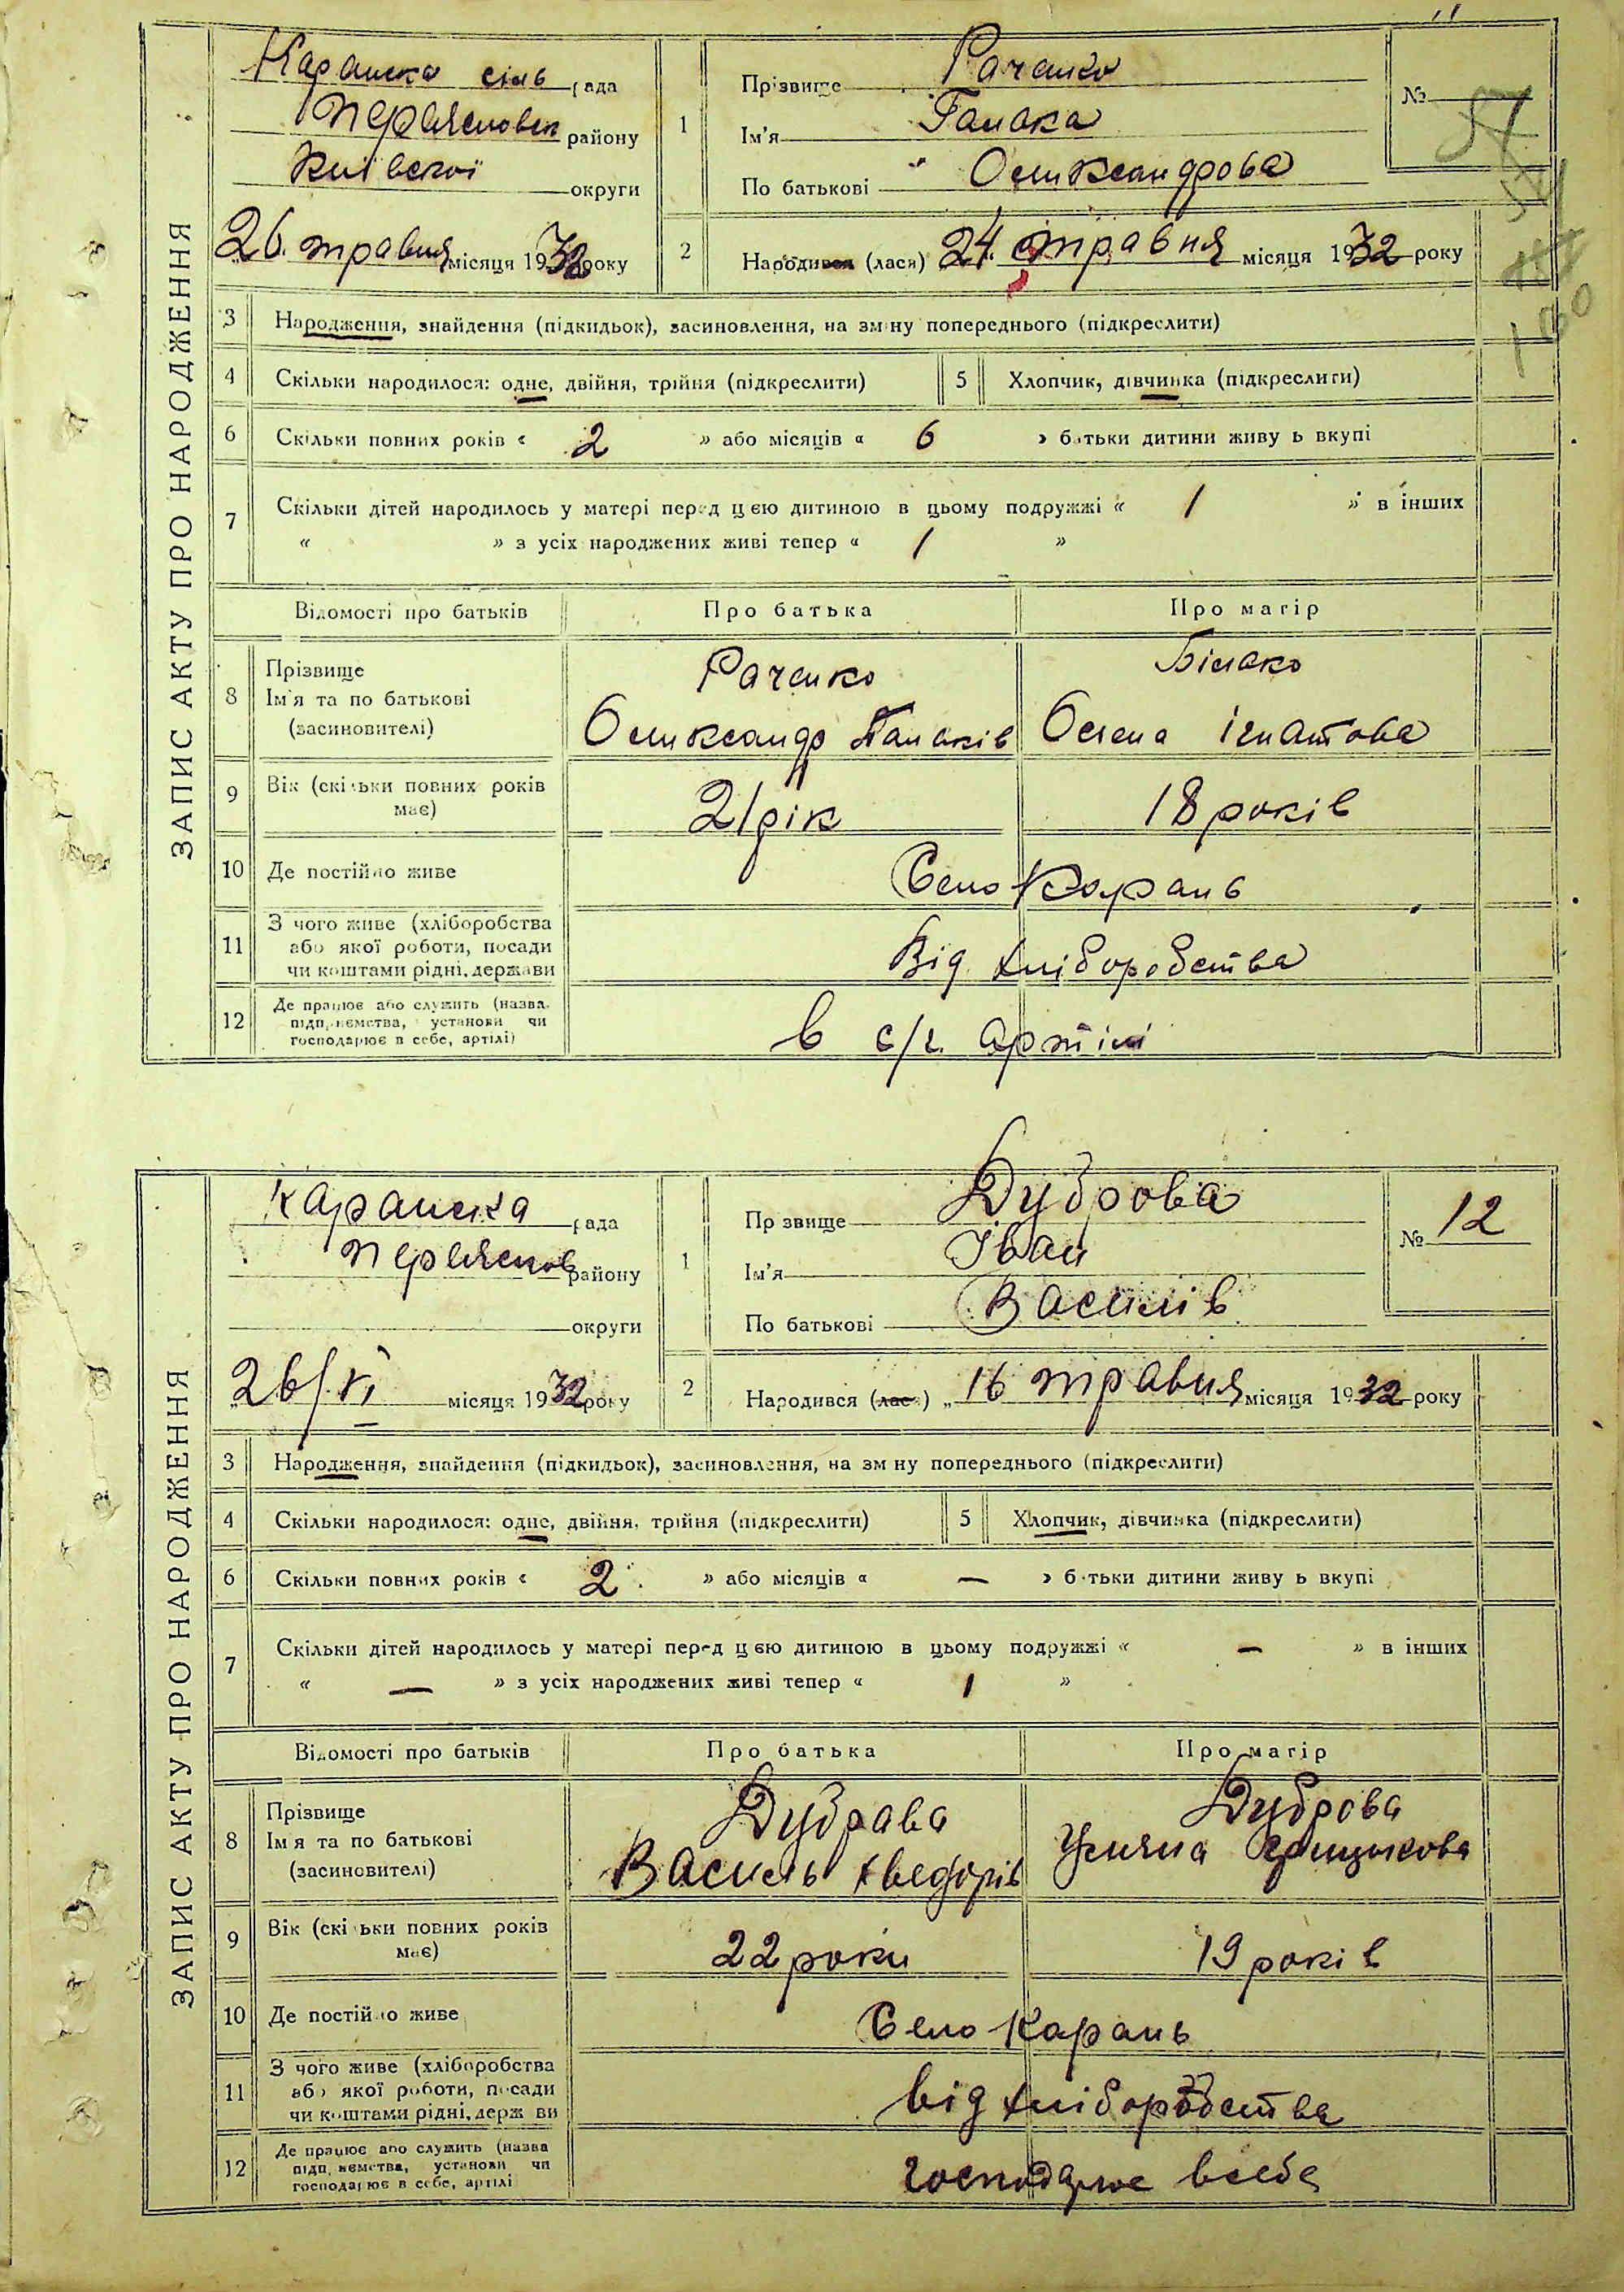 ЗАПИС АКТУ ПРО НАРОДЖЕННЯ
Каранска сілв рада
району
Київскої округи
26 травня місяця 1932 року
1
Прізвище Раченко
Ім'я Галака
По батькові Олександрова
№ 
2
Народився (лася) 24 травня місяця 1932 року
3 Народження, знайдення (підкидьок), засиновлення, на зміну попереднього (підкреслити)
4 Скільки народилося: одне, двійня, трійня (підкреслити) 5 Хлопчик, дівчинка (підкреслити)
6 Скільки повних років « 2 » або місяців « 6 » батьки дитини живуть вкупі
7 Скільки дітей народилось у матері перед цією дитиною в цьому подружжі « 1 » в інших
« » з усіх народжених живі тепер « 1 »
Відомості про батьків Про батька Про матір
8 Прізвище
Ім'я та по батькові
(засиновителі)
Раченко
Олександр
Білако
Олена Ігнатова
9 Вік (скільки повних років має) 21 рік 18 років
10 Де постійно живе Село Карань
11 З чого живе (хліборобства
або якої роботи, посади
чи коштами рідні, держави
Від хліборобства
12 Де працює або служить (назва
підприємства, установи чи
господарює в себе, артілі)
в с/г. артілі
ЗАПИС АКТУ ПРО НАРОДЖЕННЯ
Каранска рада
району
округи
26/VI місяця 1932 року
1
Прізвище Дуброва
Ім'я Іван
По батькові Василів
№ 12
2
Народився (лася) „16 травня місяця 1932 року
3 Народження, знайдення (підкидьок), засиновлення, на зміну попереднього (підкреслити)
4 Скільки народилося: одне, двійня, трійня (підкреслити) 5 Хлопчик, дівчинка (підкреслити)
6 Скільки повних років « 2 » або місяців « — » батьки дитини живуть вкупі
7 Скільки дітей народилось у матері перед цією дитиною в цьому подружжі « — » в інших
« — » з усіх народжених живі тепер « 1 »
Відомості про батьків Про батька Про матір
8 Прізвище
Ім'я та по батькові
(засиновителі)
Дубрава
Василь Хведорів
Дуброва
Уляна Грицькова
9 Вік (скільки повних років має) 22 роки 19 років
10 Де постійно живе Село Карань
11 З чого живе (хліборобства
або якої роботи, посади
чи коштами рідні, держави
від хліборобства
12 Де працює або служить (назва
підприємства, установи чи
господарює в себе, артілі
господарює всебе